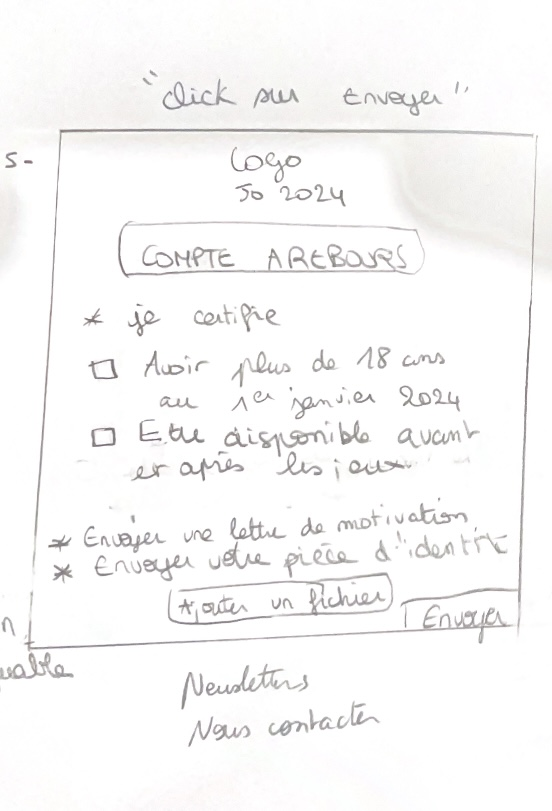 "click sur Envoyer"
s-
Logo
JO 2024
COMPTE A REBOURS
* je certifie
Avoir plus de 18 ans
au 1er janvier 2024
Etre disponible avant
et après les jeux
* Envoyer une lettre de motivation
* Envoyer votre pièce d'identité
Ajouter un fichier
Envoyer
n
uable
Newsletters
Nous contacter